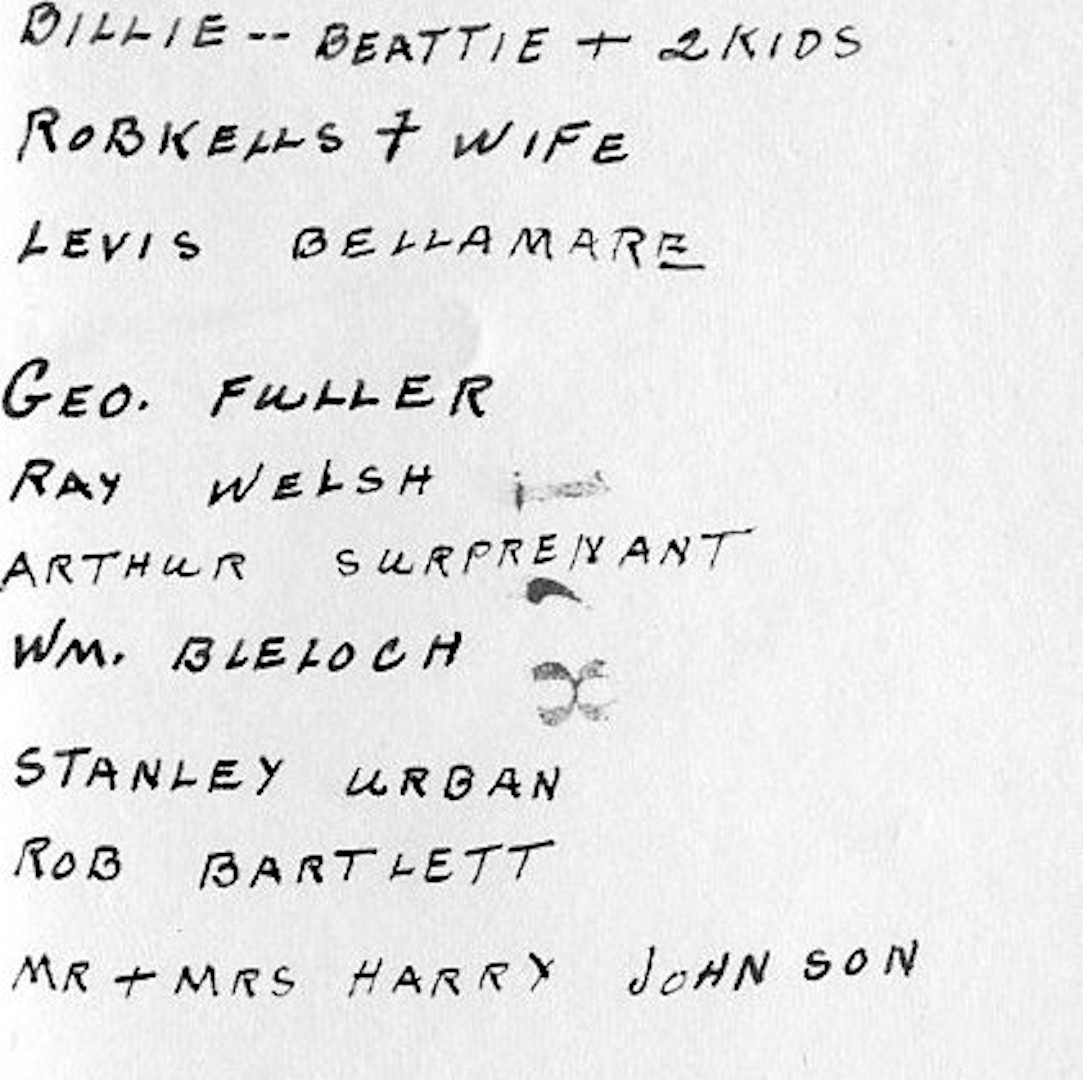 BILLIE -- BEATTIE + 2 KIDS
ROBKELLS + WIFE
LEVIS BELLAMARE
GEO. FULLER
RAY WELSH
ARTHUR SURPRENANT
WM. BLELOCH
STANLEY URBAN
ROB BARTLETT
MR + MRS HARRY JOHNSON